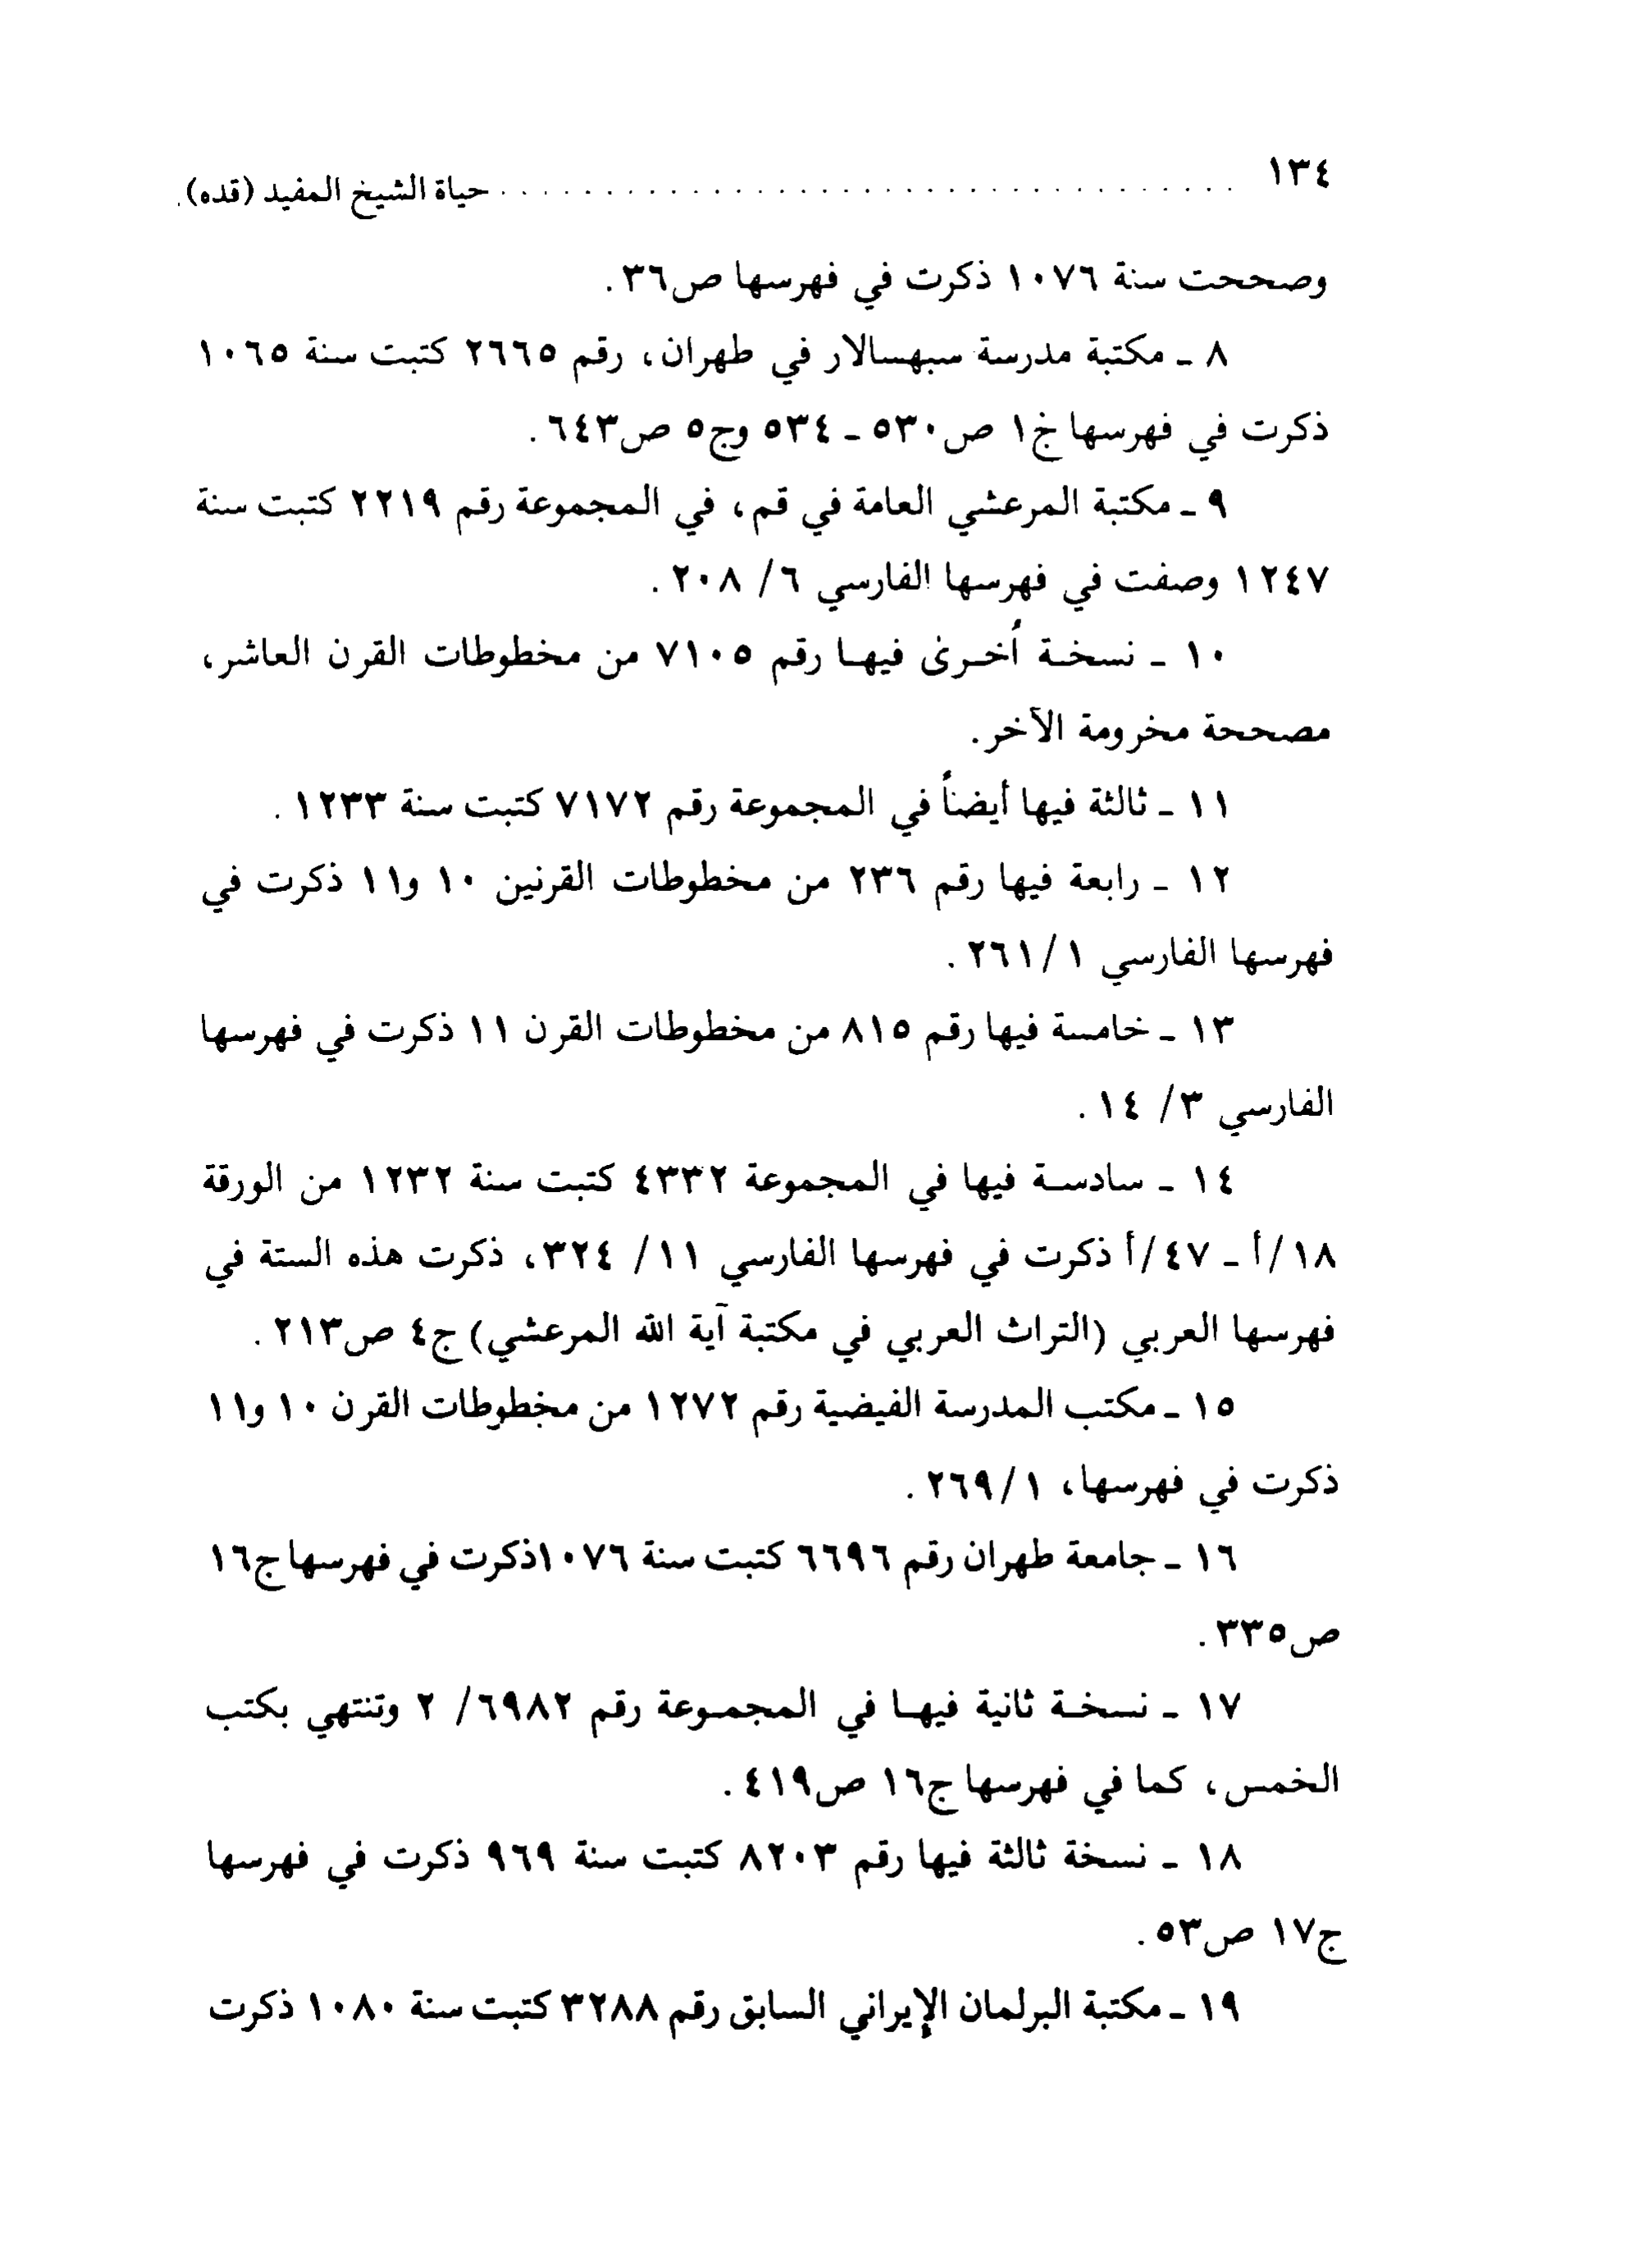 ١٣٤ . . . . . . . . . . . . . . . . . . . . . . . . . . . . . . حياة الشيخ المفيد (قده).
وصححت سنة ١٠٧٦ ذكرت في فهرسها ص٣٦.
٨ ـ مكتبة مدرسة سبهسالار في طهران، رقم ٢٦٦٥ كتبت سنة ١٠٦٥
ذكرت في فهرسها خ١ ص٥٣٠ ـ ٥٣٤ وج٥ ص٦٤٣.
٩ ـ مكتبة المرعشي العامة في قم، في المجموعة رقم ٢٢١٩ كتبت سنة
١٢٤٧ وصفت في فهرسها الفارسي ٦/ ٢٠٨.
١٠ ـ نسخة أُخرىٰ فيها رقم ٧١٠٥ من مخطوطات القرن العاشر،
مصححة مخرومة الآخر.
١١ ـ ثالثة فيها أيضاً في المجموعة رقم ٧١٧٢ كتبت سنة ١٢٣٣.
١٢ ـ رابعة فيها رقم ٢٣٦ من مخطوطات القرنين ١٠ و١١ ذكرت في
فهرسها الفارسي ١/ ٢٦١.
١٣ ـ خامسة فيها رقم ٨١٥ من مخطوطات القرن ١١ ذكرت في فهرسها
الفارسي ٣/ ١٤.
١٤ ـ سادسة فيها في المجموعة ٤٣٣٢ كتبت سنة ١٢٣٢ من الورقة
١٨/أ ـ ٤٧/أ ذكرت في فهرسها الفارسي ١١/ ٣٢٤، ذكرت هذه الستة في
فهرسها العربي (التراث العربي في مكتبة آية الله المرعشي) ج٤ ص٢١٣.
١٥ ـ مكتب المدرسة الفيضية رقم ١٢٧٢ من مخطوطات القرن ١٠ و١١
ذكرت في فهرسها، ١/ ٢٦٩.
١٦ ـ جامعة طهران رقم ٦٦٩٦ كتبت سنة ١٠٧٦ذكرت في فهرسها ج١٦
ص٣٣٥.
١٧ ـ نسخة ثانية فيها في المجموعة رقم ٦٩٨٢/ ٢ وتنتهي بكتب
الخمس، كما في فهرسها ج١٦ ص٤١٩.
١٨ ـ نسخة ثالثة فيها رقم ٨٢٠٣ كتبت سنة ٩٦٩ ذكرت في فهرسها
ج١٧ ص٥٣.
١٩ ـ مكتبة البرلمان الإيراني السابق رقم ٣٢٨٨ كتبت سنة ١٠٨٠ ذكرت